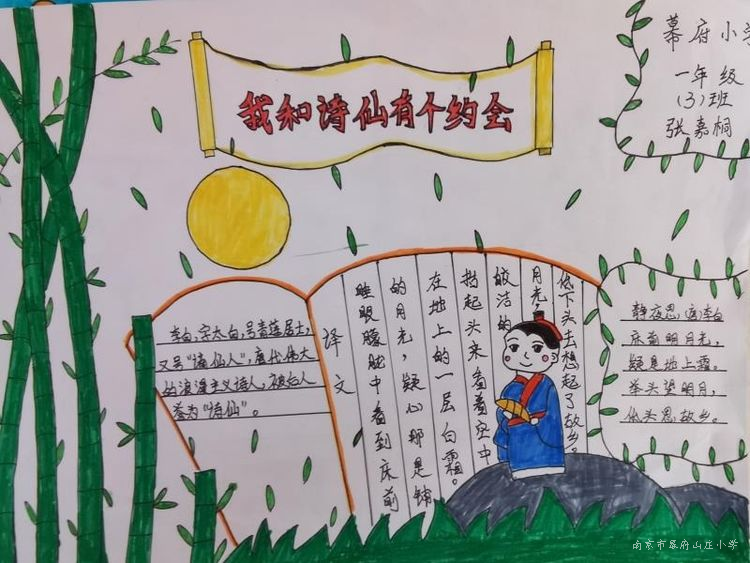 我和诗仙有个约会
幕府小学
一年级
(3)班
张嘉桐
李白，字太白，号青莲居士，
又号“谪仙人”，唐代伟大
的浪漫主义诗人，被后人
誉为“诗仙”。
译文
睡眼朦胧中看到床前
的月光，疑心那是铺
在地上的一层白霜。
抬起头来看着空中
皎洁的
月光，
低下头去想起了故乡。
静夜思 唐李白
床前明月光，
疑是地上霜。
举头望明月，
低头思故乡。
南京市幕府山庄小学